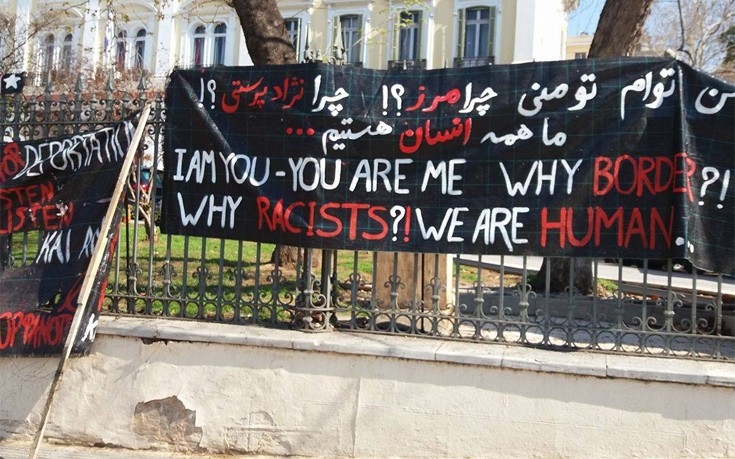 من توام تو منی چرا مرز؟! چرا نژاد پرستی؟!
ما همه انسان هستیم...
I AM YOU - YOU ARE ME WHY BORDER?!
WHY RACISTS?! WE ARE HUMAN.
DEPORTATION
LISTEN
KAI